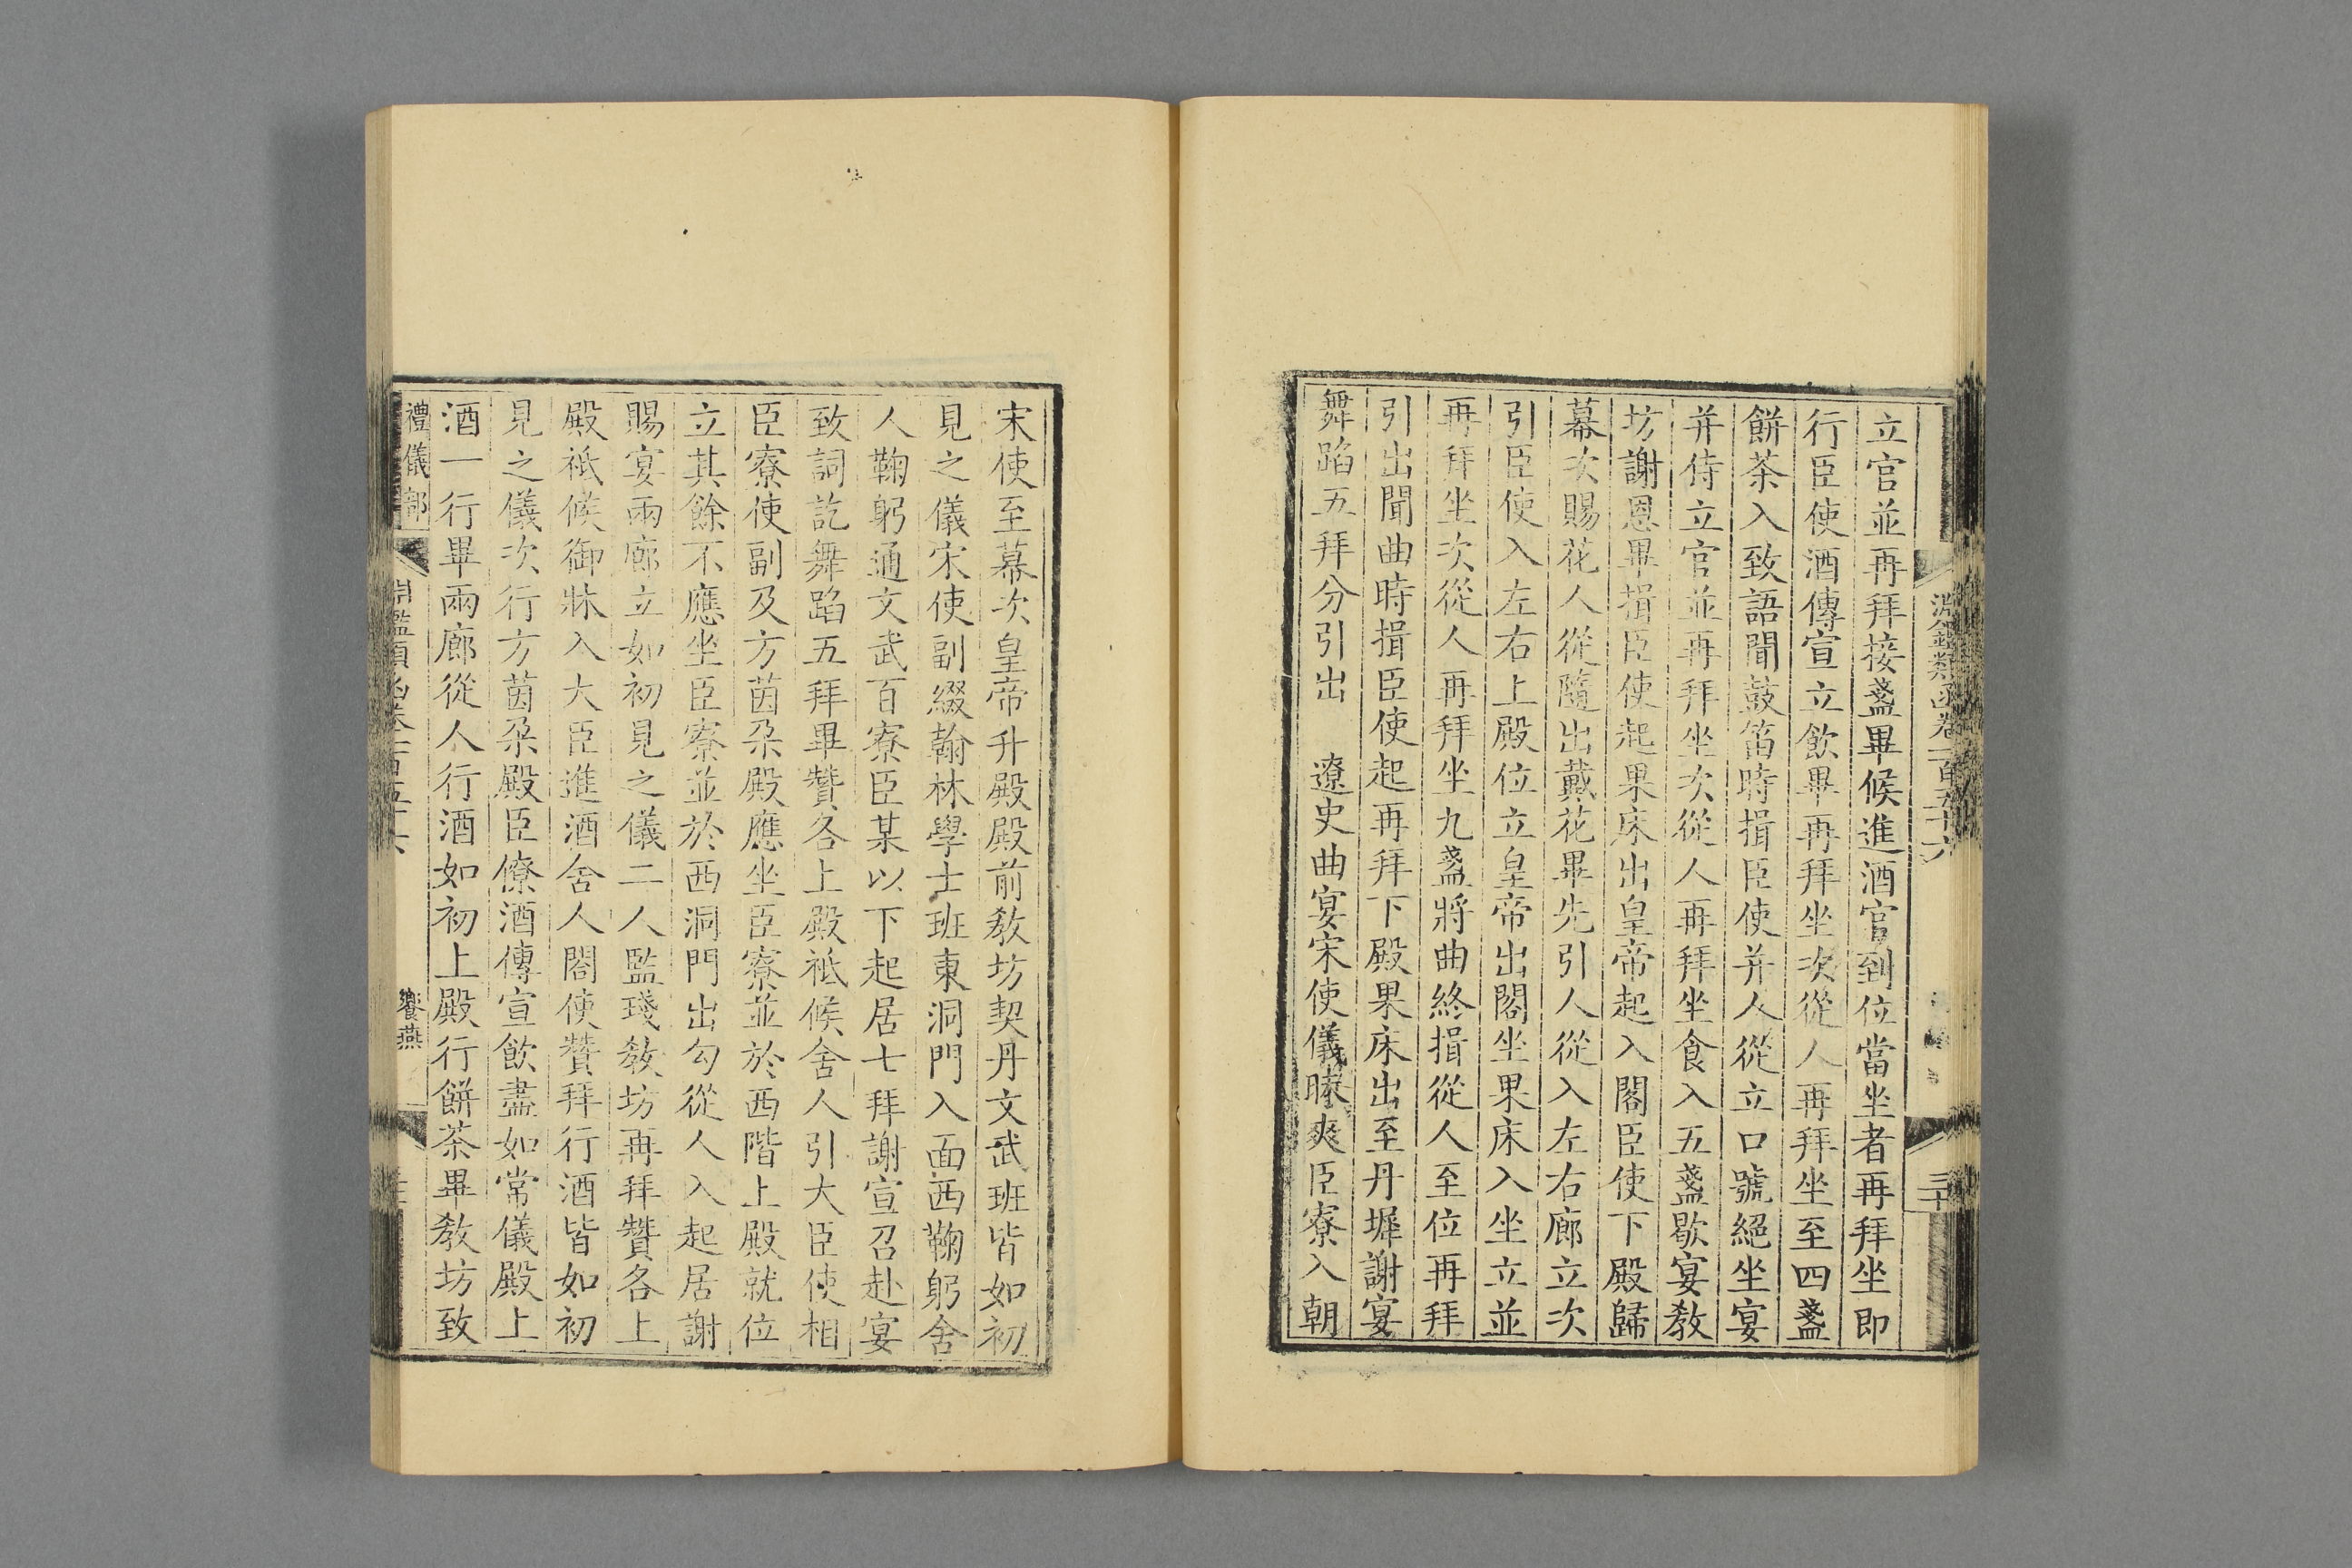 淵鑑類函卷一百五十六
三十
立官並再拜接盞畢候進酒官到位當坐者再拜坐即
行臣使酒傳宣立飲畢再拜坐次從人再拜坐至四盞
餅茶入致語聞鼓笛時揖臣使并人從立口號絕坐宴
并侍立官並再拜坐次從人再拜坐食入五盞歇宴教
坊謝恩畢揖臣使起果床出皇帝起入閣臣使下殿歸
幕次賜花人從隨出戴花畢先引人從入左右廊立次
引臣使入左右上殿位立皇帝出閣坐果床入坐立並
再拜坐次從人再拜坐九盞將曲終揖從人至位再拜
引出聞曲時揖臣使起再拜下殿果床出至丹墀謝宴
舞蹈五拜分引出　遼史曲宴宋使儀昧爽臣寮入朝
宋使至幕次皇帝升殿殿前教坊契丹文武班皆如初
見之儀宋使副綴翰林學士班東洞門入面西鞠躬舍
人鞠躬通文武百寮臣某以下起居七拜謝宣召赴宴
致詞訖舞蹈五拜畢贊各上殿祗候舍人引大臣使相
臣寮使副及方茵朶殿應坐臣寮並於西階上殿就位
立其餘不應坐臣寮並於西洞門出勾從人入起居謝
賜宴兩廊立如初見之儀二人監琖教坊再拜贊各上
殿祗候御牀入大臣進酒舍人閤使贊拜行酒皆如初
見之儀次行方茵朶殿臣僚酒傳宣飲盡如常儀殿上
酒一行畢兩廊從人行酒如初上殿行餅茶畢教坊致
禮儀部
淵鑑類函卷一百五十六
饗燕